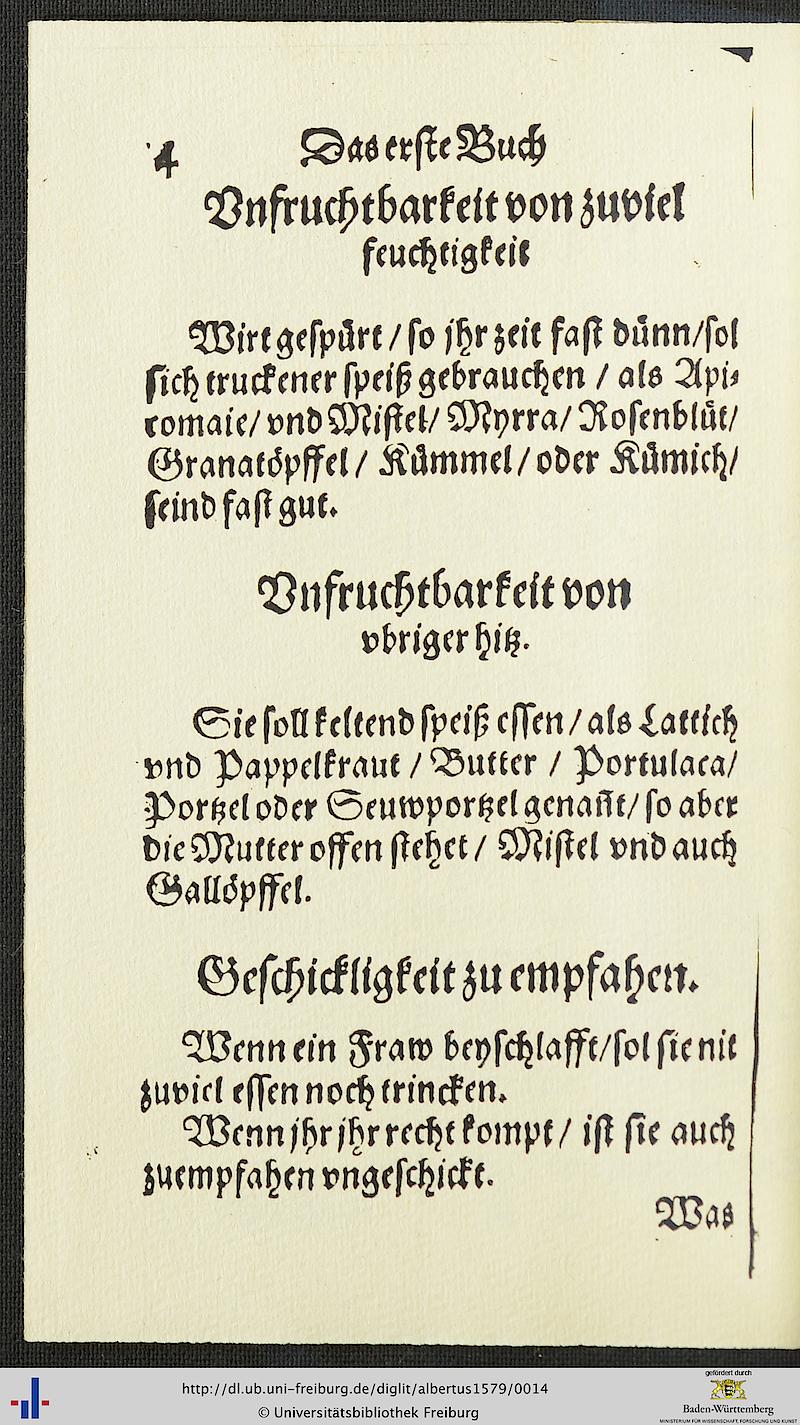 4 Das erste Buch
Vnfruchtbarkeit von zuviel
feuchtigkeit
Wirt gespürt / so jhr zeit fast dünn/sol
sich truckener speiß gebrauchen / als Api⸗
romaie/ vnd Mistel/ Myrra/ Rosenblüt/
Granatöpffel / Kümmel / oder Kümich/
seind fast gut.
Vnfruchtbarkeit von
vbriger hitz.
Sie soll keltend speiß essen / als Lattich
vnd Pappelkraut / Butter / Portulaca/
Portzel oder Seuwportzel genañt/ so aber
die Mutter offen stehet / Mistel vnd auch
Gallöpffel.
Geschickligkeit zu empfahen.
Wenn ein Fraw beyschlafft/sol sie nit
zuviel essen noch trincken.
Wenn jhr jhr recht kompt / ist sie auch
zuempfahen vngeschickt.
Was
http://dl.ub.uni-freiburg.de/diglit/albertus1579/0014
© Universitätsbibliothek Freiburg
gefördert durch
Baden-Württemberg
MINISTERIUM FÜR WISSENSCHAFT, FORSCHUNG UND KUNST